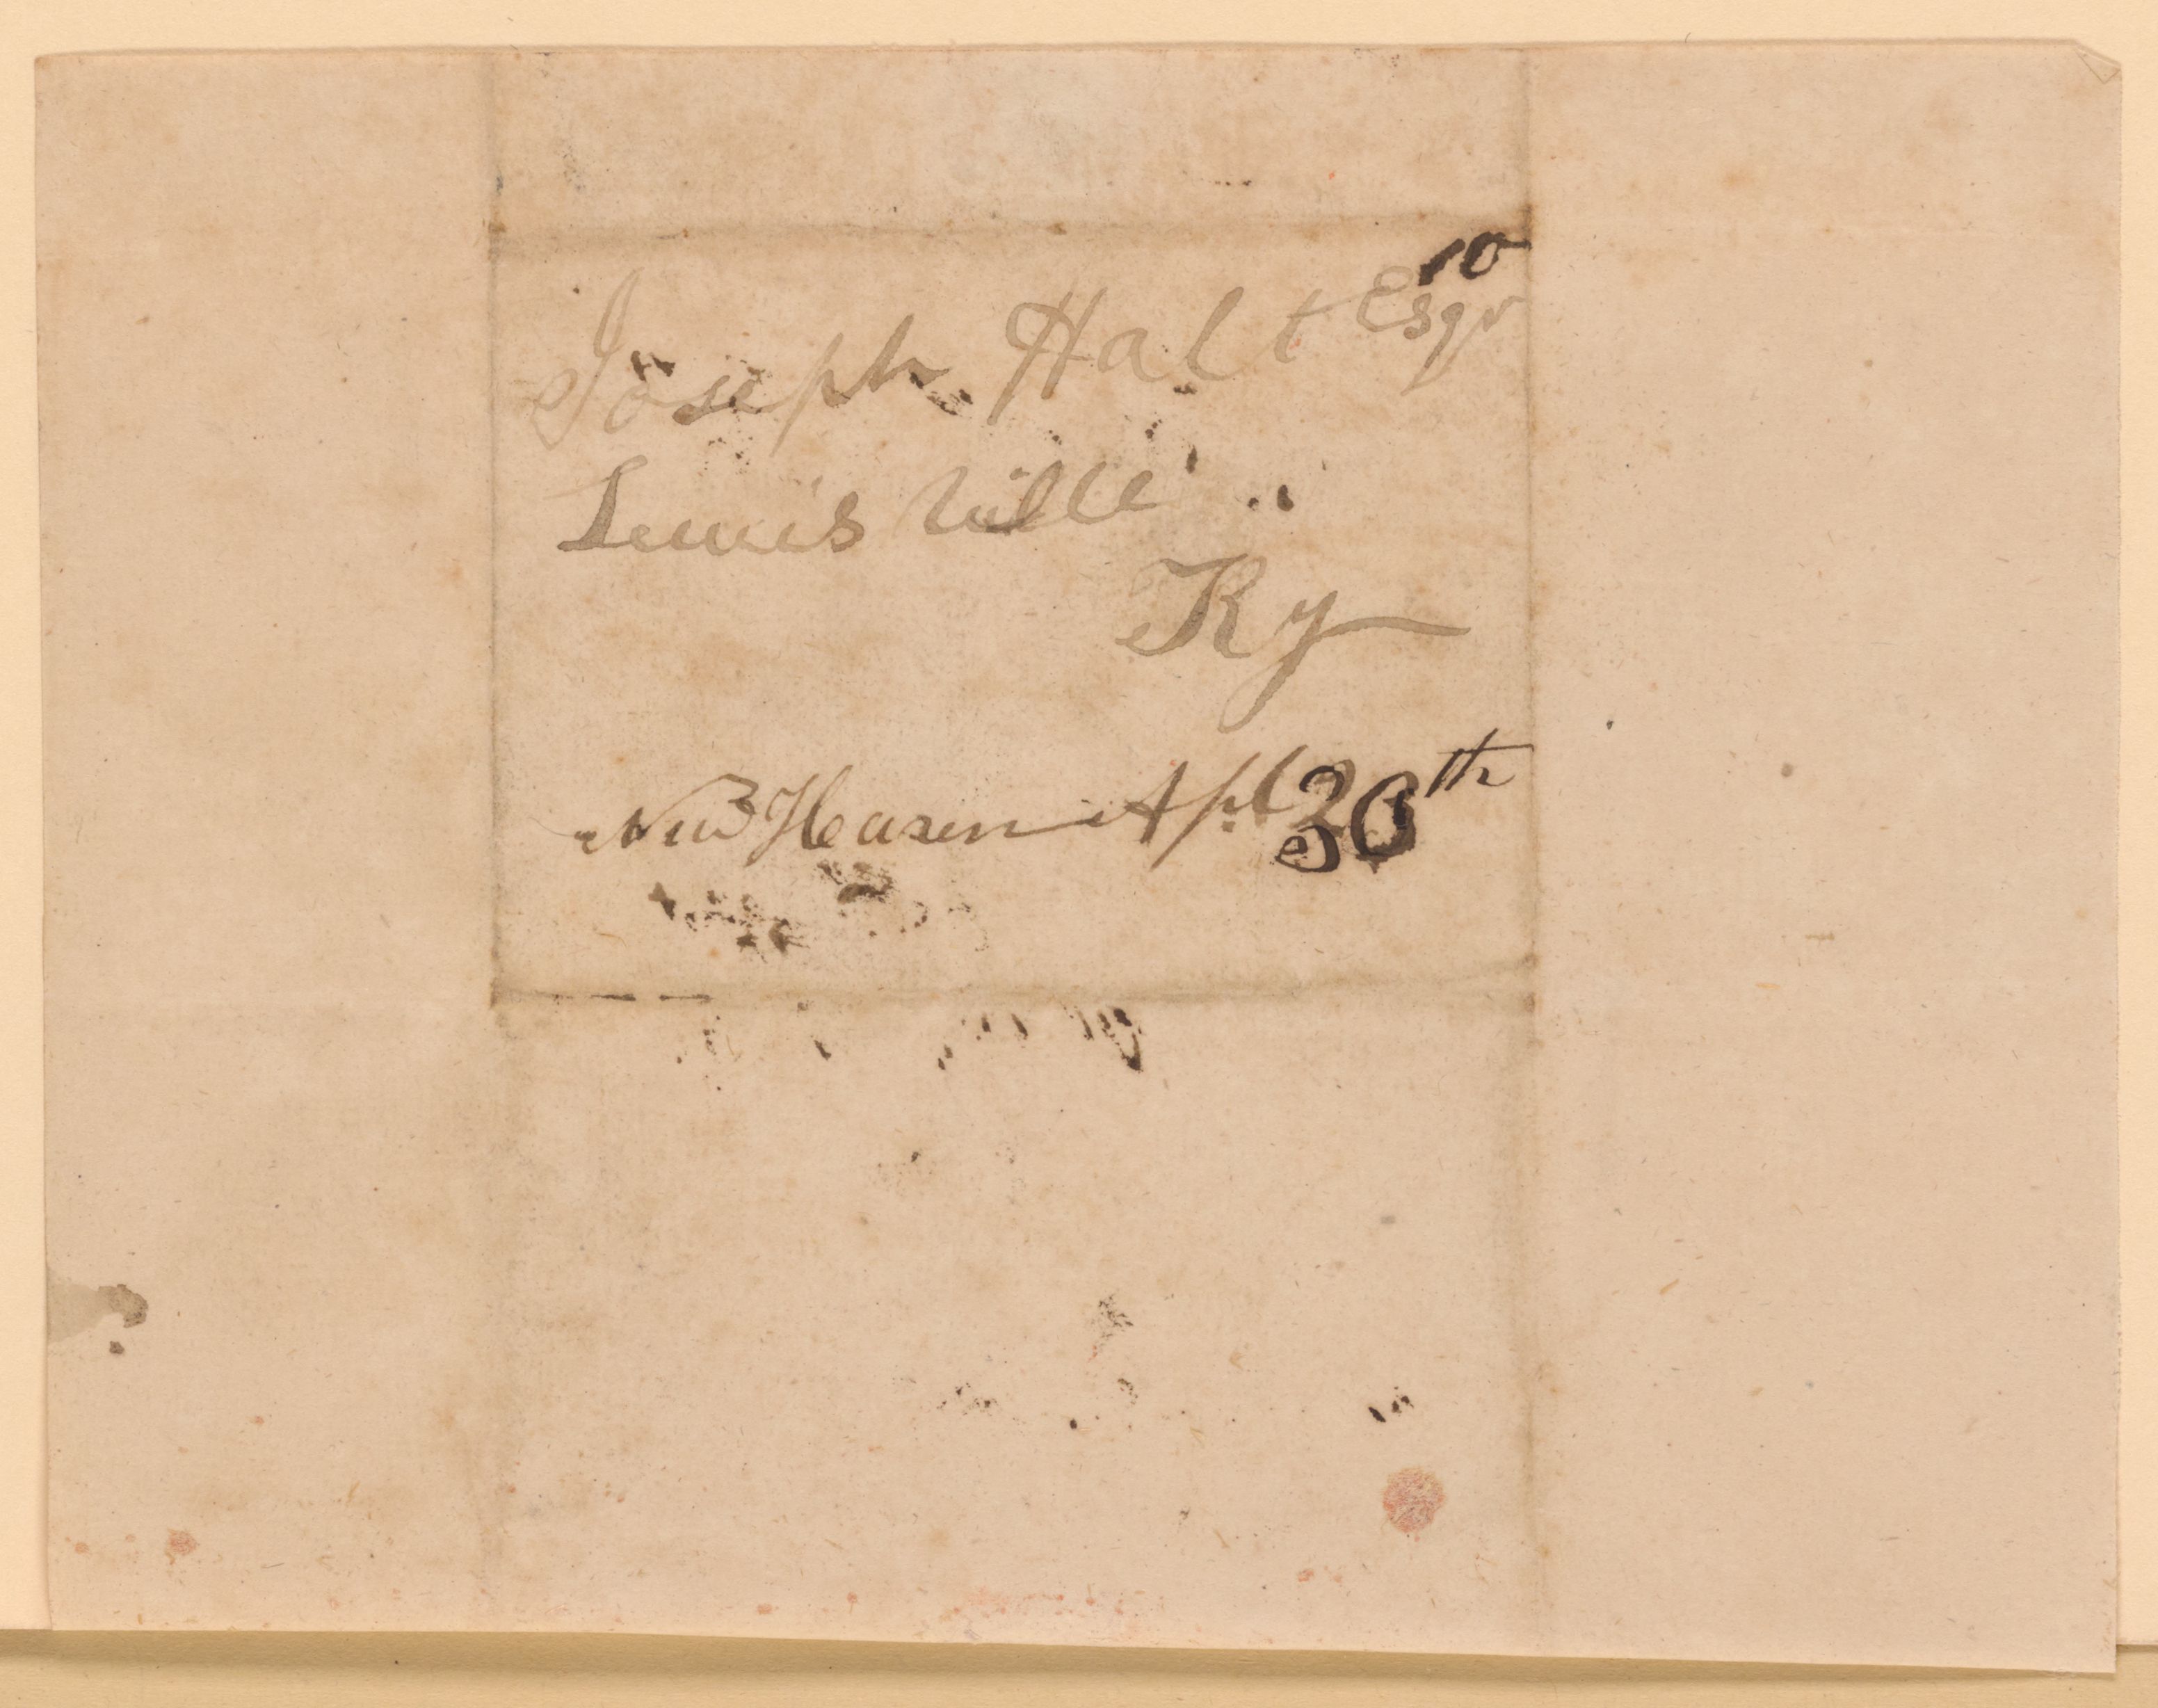 10
Joseph Halt Esqr
Lewis ville
Ky
New Haven Apl 30th